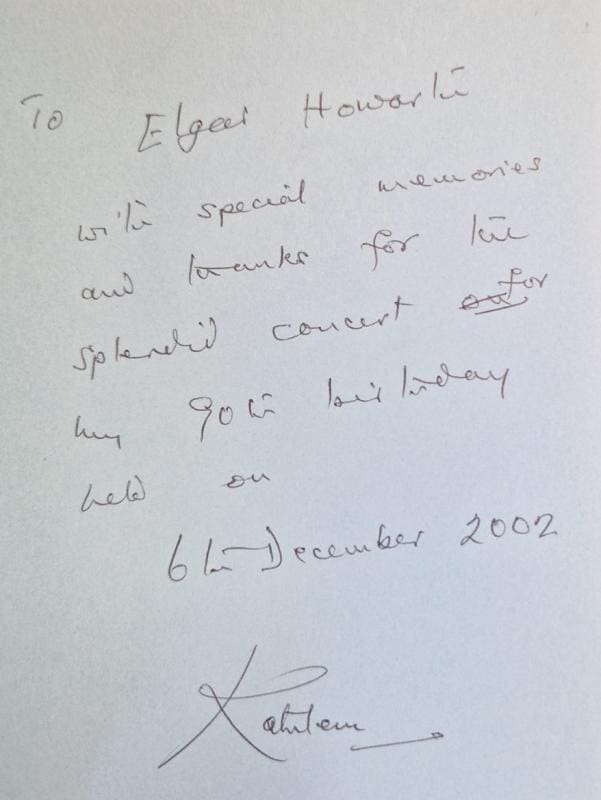 To Elgar Howarth
with special memories
and thanks for the
splendid concert on for
my 90th birthday
held on
6th December 2002
Kathleen